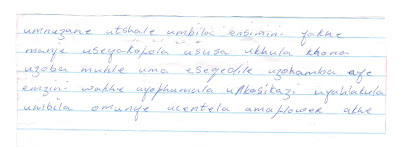 umnuzane utshale umbila ensimini yakhe
manje useyakopola ususa ukhula khona
uzoba muhle uma eseqedile uzohamba aye
emzini wakhe ayophumula uNkosikazi uyahlakula
umbila omunye ucentela amaflower akhe